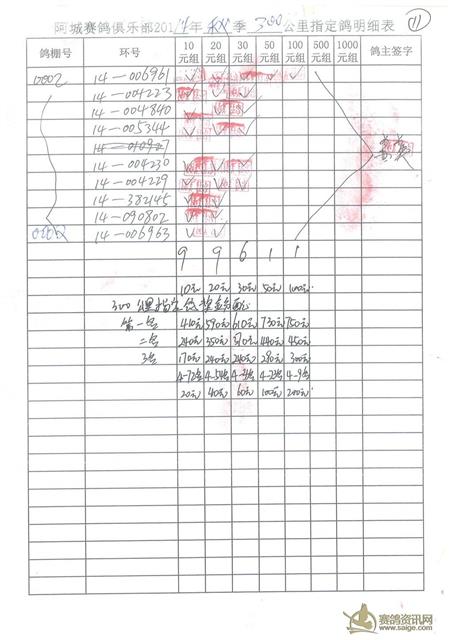 阿城赛鸽俱乐部2014年 秋 季 300公里指定鸽明细表
11
鸽棚号 环号 10元组 20元组 30元组 50元组 100元组 500元组 1000元组 鸽主签字
14-006961
14-004223
14-004840
14-005344
14-004230
14-004229
14-382145
14-090802
14-006963
9 9 6 1 1
10元 20元 30元 50元 100元
300公里指定
第一名 410元 590元 610元 730元 750元
二名 240元 350元 370元 440元 450元
3名 170元 240元 240元 280元 300元
20元 40元 60元 100元 200元
赛鸽资讯网
www.saige.com